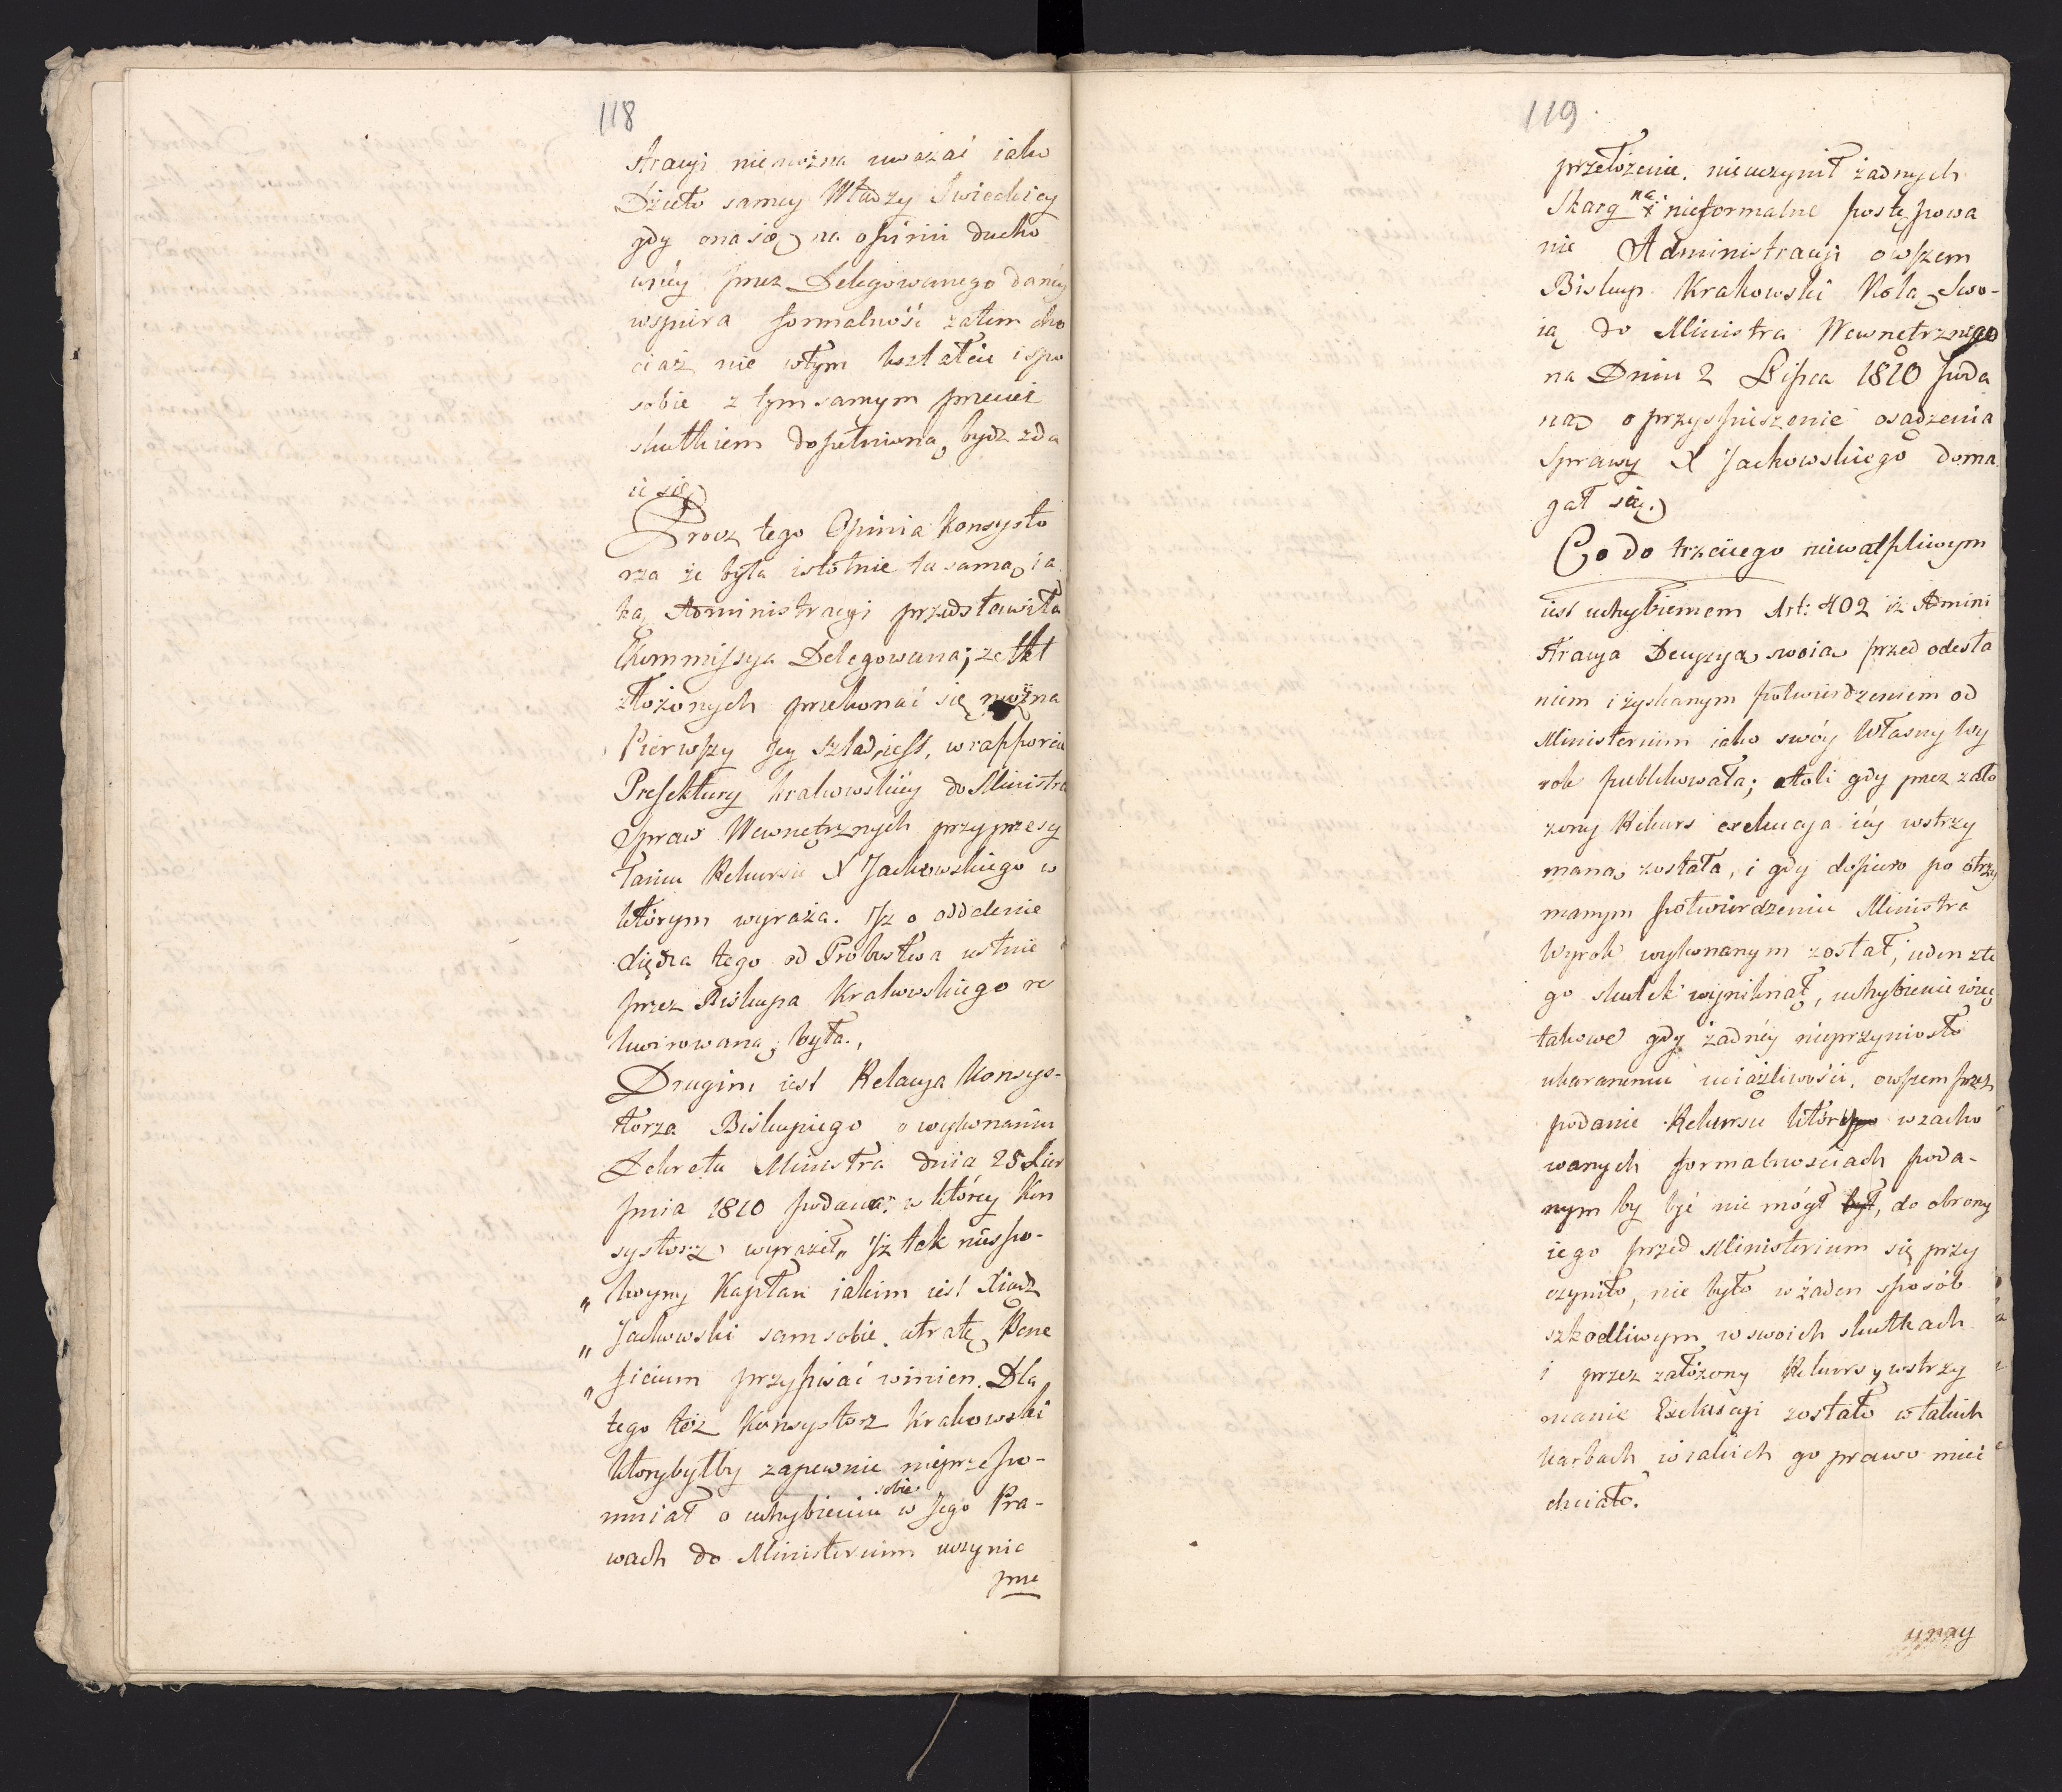 118
stracyi niemożna uważać iako
Dzieło samey Władzy Swieckiey
gdy ona się na opinii ducho
wnéy przez Delegowanego danéy
wspiera formalność zatem cho
ciaż nie wtym kształcie i spo
sobie z tym samym przecież
skutkiem dopełniona, bydź zda
ie się
Procz tego Opinia Konsysto
rza że była istotnie ta sama, ia
ką Administracyi przedstawiła
Kommissya Delegowana; ze Akt
złożonych przekonać się można
Pierwszy Jey szlad iest, w rapporcie
Prefektury Krakowskiey do Ministra
Spraw Wewnętrznych przy przesy
łaniu Rekursu X Jackowskiego w
którym wyraża. Iż o oddalenie
Xiędza tego od Probostwa ustnie
przez Biskupa Krakowskiego re
kwirowaną była.,
Drugim iest Relacya Konsys-
torza Biskupiego o wykonaniu
Dekretu Ministra dnia 25 Sier
pnia 1810 podana: w którey Kon
systorz wyraził „ Iż tak niespo-
„ koyny Kapłan iakim iest Xiądz
„ Jackowski sam sobie utratę Bene
„ ficium przypisać winien. Dla
tego też Konsystorz Krakowski
któryby łby zapewnie nieprzepo-
sobie
mniał o uchybieniu w Jego Pra-
wach do Ministerium uczynić
prze
119
przełożenie. nieuczynił żadnych
na
Skarg i nieformalne postępowa
nie Administracyi owszem
Biskup Krakowski Notą Swo-
ią do Ministra Wewnętrznego
na Dniu 2 Lipca 1810 poda
ną o przyspieszenie osądzenia
Sprawy X Jackowskiego doma
gał się.
Co do trzeciego niewątpliwym
iest uchybieniem Art: 402 iż Admini
stracya Decyzyą swoią przed odesła
niem i zyskanym potwierdzeniem od
Ministerium iako swóy Własny Wy
rok publikowała; atoli gdy przez zało
żony Rekurs exekucya iéy wstrzy
maną została, i gdy dopiero po otrzy
manym potwierdzeniu Ministra
Wyrok wykonanym został, ieden zte
go skutek wyniknął, uchybienie więc
takowe gdy żadnéy nieprzyniosło
ukaranemu uciążliwości, owszem przez
podanie Rekursu który w zacho
wanych formalnościach poda-
nym by być nie mógł był, do obrony
iego przed Ministerium się przy
czyniło, nie było w żaden sposób
szkodliwym w swoich skutkach
i przez założony Rekurs, wstrzy
manie Exekucyi zostało w takich
karbach w iakich go prawo mieć
chciało.